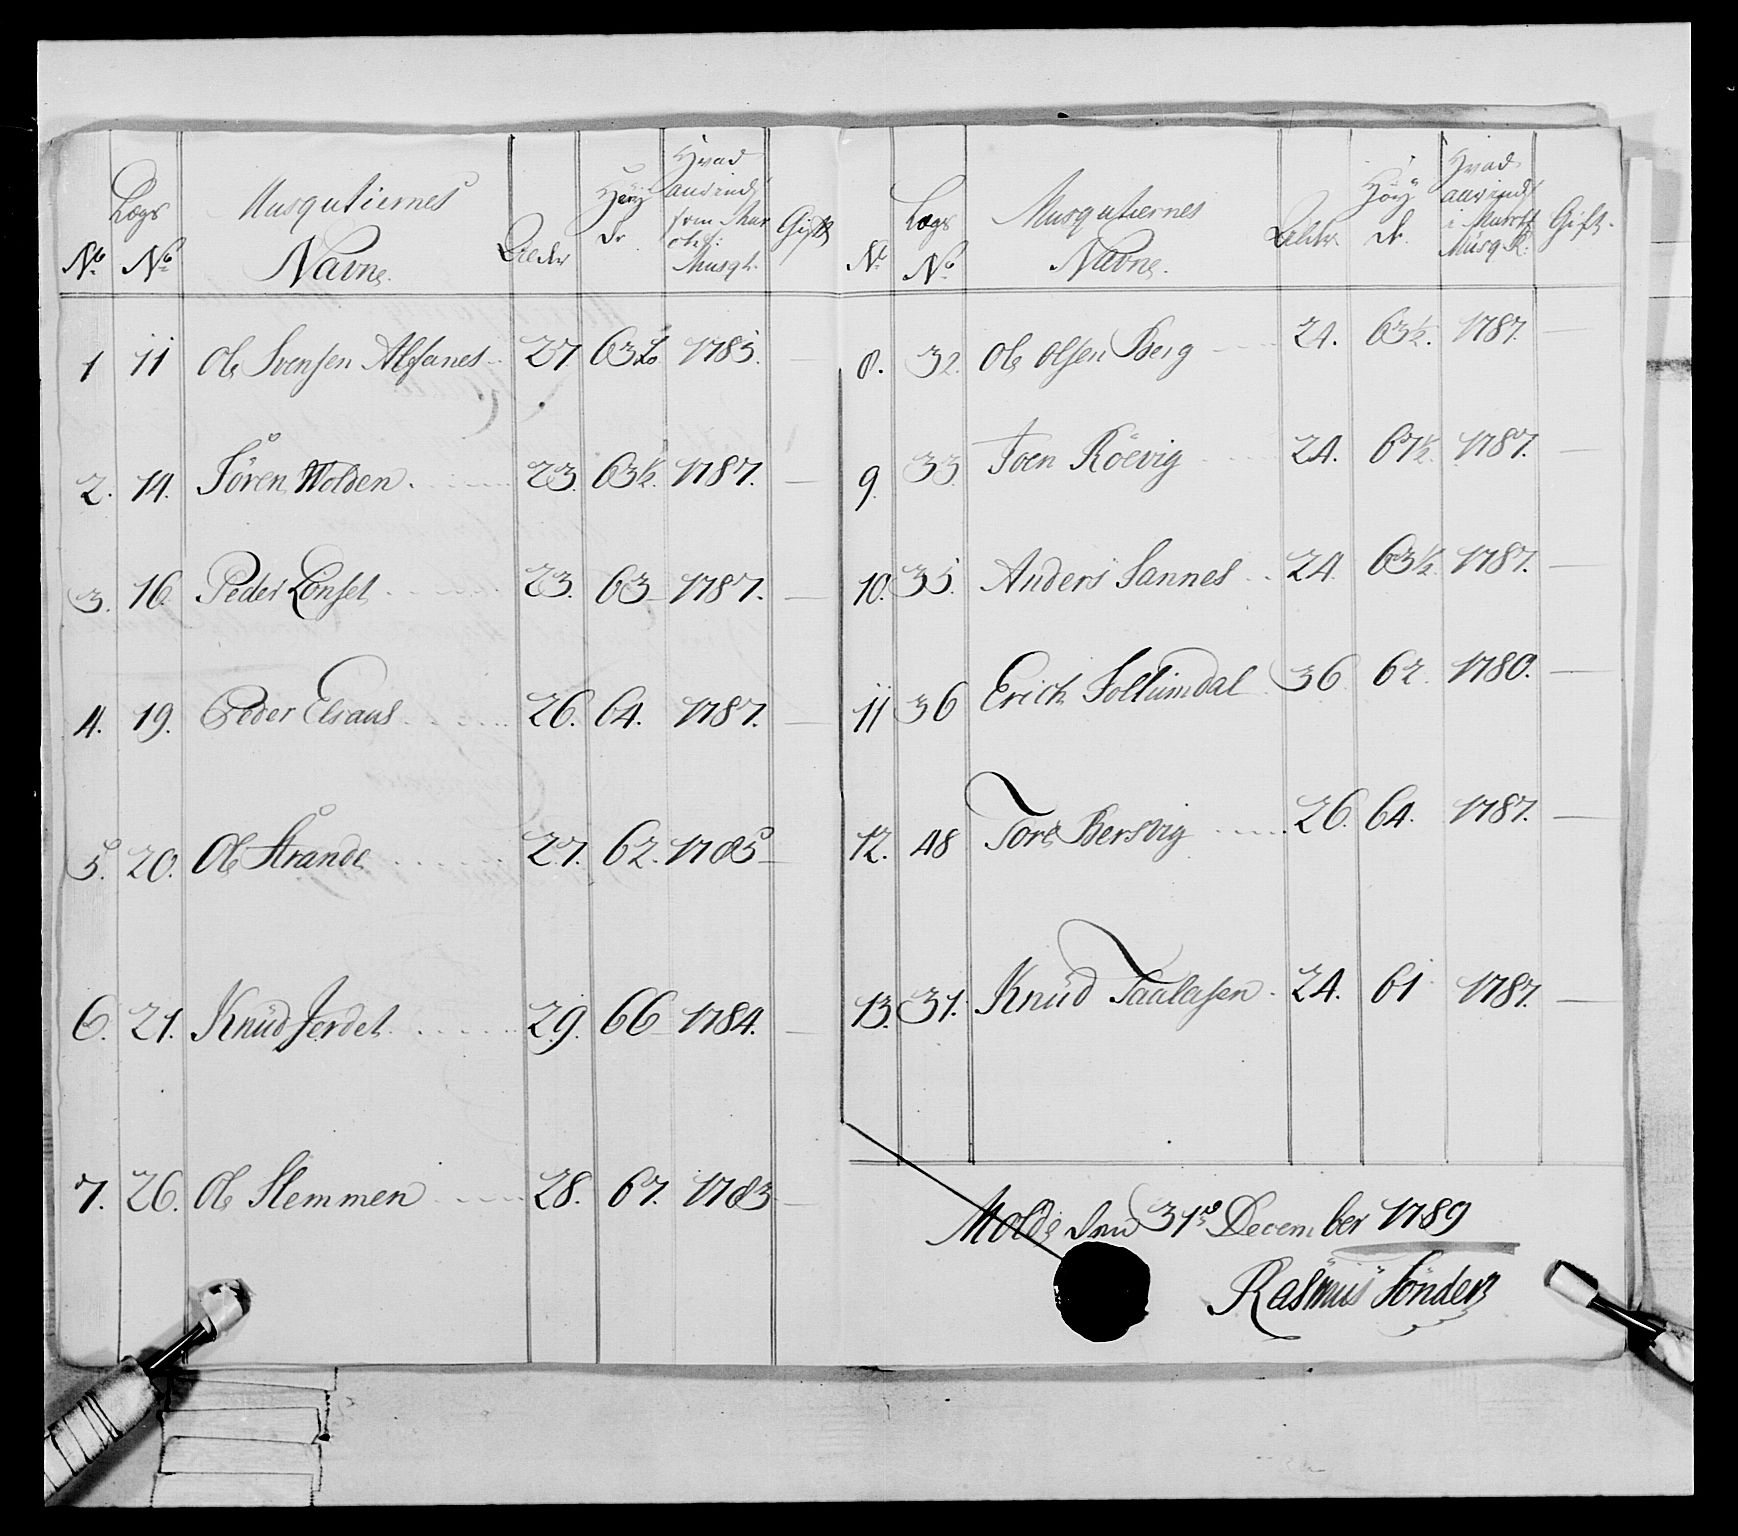 No.
Lægs No.
Musqutiernes Navne.
Alder
Høy de
Hvad
Gift
1 11 Ole Svensen Alfanes 27 63½ 1785. —
2. 14. Sören Wolden 23. 63½. 1787. —
3. 16. Peder Lonset 23. 63 1787. —
4. 19. Peder Elsaus 26. 64. 1787. —
5. 20. Ole Strande 27. 62. 1785 —
6. 21. Knüd Jerdet 29. 66 1784. —
7. 26. Ole Stemmen 28. 67. 1783 —
No.
Lægs No.
Musqutiernes Navne.
Alder
Høy de
Hvad
Gift.
8. 32. Ole Olsen Berg 24. 63½. 1787. —
9. 33. Joen Röevig 24. 67½. 1787. —
10. 35. Anders Sannes 24. 63½ 1787. —
11 36 Erich Soltümdal 36 62. 1780. —
12. 48 Tore Bersvig 26. 64. 1787. —
13. 31. Knüd Taalasen 24. 61 1787. —
Molde den 31te December 1789
Rasmus Sönder